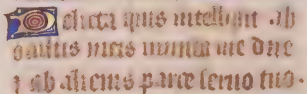 Delicta quis intelligit ab
occultis meis munda me dne
⁊ ab alienis parce seruo tuo.